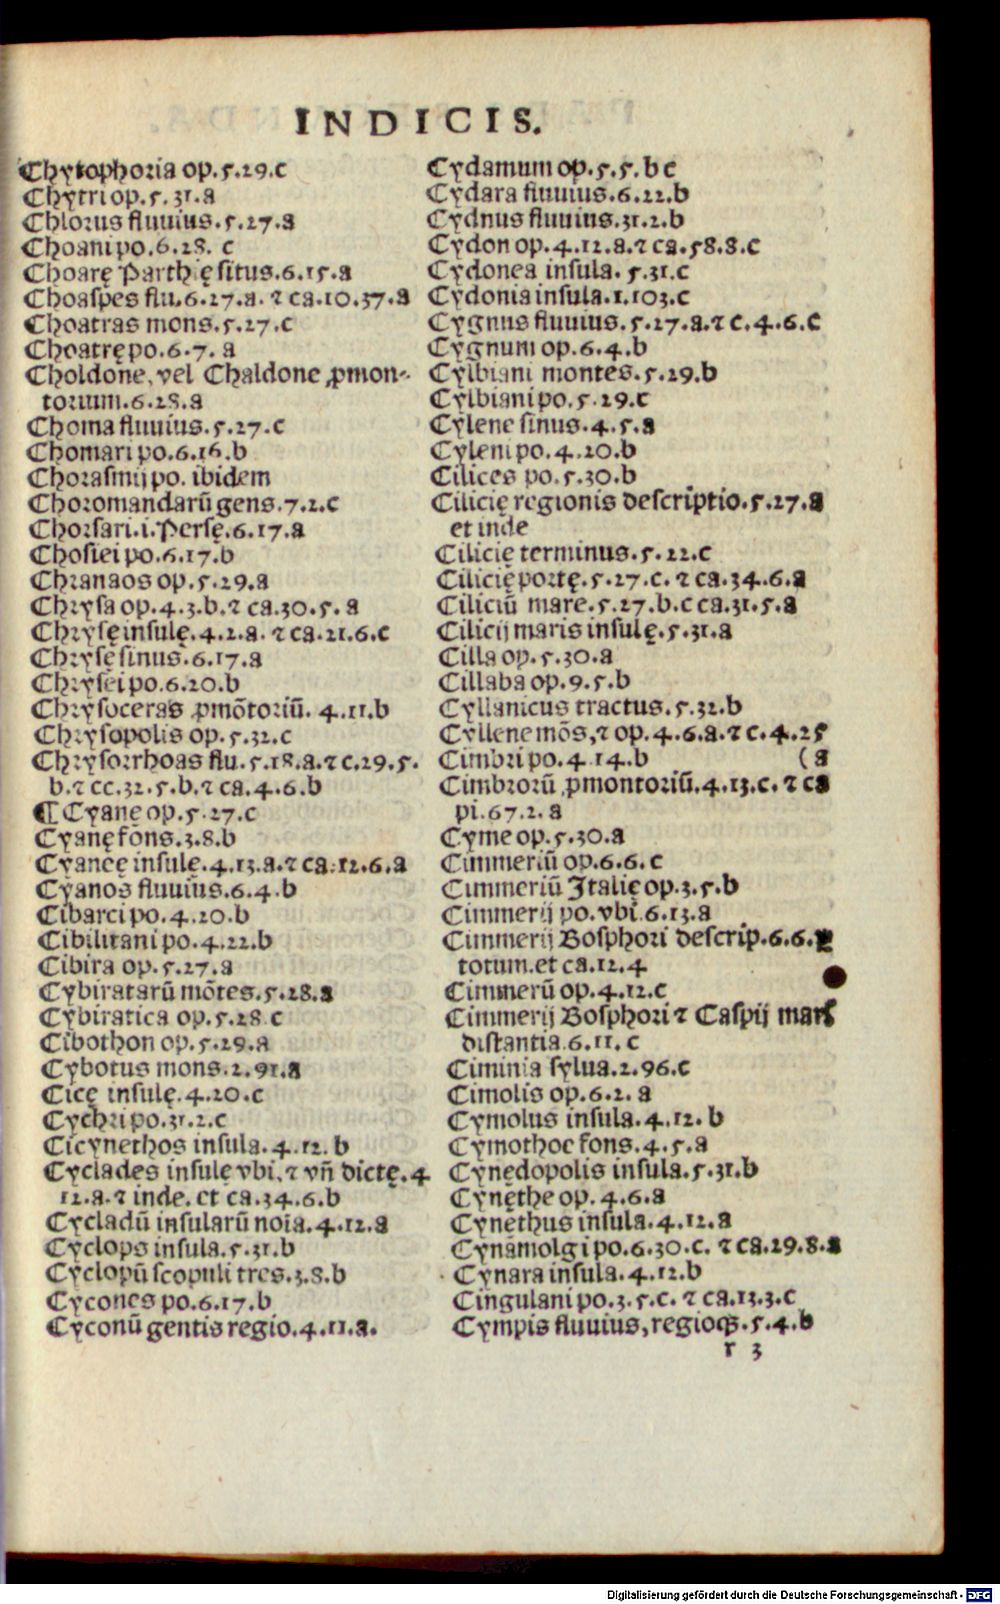 INDICIS.
Chytophoria op.5.29.c
Chytri op.5.31.a
Chlorus fluuius.5.27.a
Choani po.6.28. c
Choarę Parthię situs.6.15.a
Choaspes flu.6.27.a. ⁊ ca.10.37.a
Choatras mons.5.27.c
Choatrę po.6.7. a
Choldone, vel Chaldone ꝓmon-
torium.6.28.a
Choma fluuius.5.27.c
Chomari po.6.16.b
Chorasmij po. ibidem
Choromandarū gens.7.2.c
Chorsari.i.Persę.6.17.a
Chosiei po.6.17.b
Chranaos op.5.29.a
Chrysa op.4.3.b.⁊ ca.30.5. a
Chrysę insulę.4.2.a. ⁊ ca.21.6.c
Chrysę sinus.6.17.a
Chrysei po.6.20.b
Chrysoceras ꝓmōtoriū. 4.11.b
Chrysopolis op.5.32.c
Chrysorrhoas flu.5.18.a.⁊ c.29.5.
b.⁊ cc.32.5.b.⁊ ca.4.6.b
¶ Cyane op.5.27.c
Cyanę fons.3.8.b
Cyaneę insulę.4.13.a.⁊ ca.12.6.a
Cyanos fluuius.6.4.b
Cibarci po.4.20.b
Cibilitani po.4.22.b
Cibira op.5.27.a
Cybiratarū mōtes.5.28.a
Cybiratica op.5.28.c
Cibothon op.5.29.a
Cybotus mons.2.91.a
Cicę insulę.4.20.c
Cychri po.31.2.c
Cicynethos insula.4.12.b
Cyclades insulę vbi,⁊ vñ dictę.4
12.a.⁊ inde.et ca.34.6.b
Cycladū insularū noīa.4.12.a
Cyclops insula.5.31.b
Cyclopū scopuli tres.3.8.b
Cycones po.6.17.b
Cyconū gentis regio.4.11.a.
Cydamum op.5.5.b c
Cydara fluuius.6.22.b
Cydnus fluuius.31.2.b
Cydon op.4.12.a.⁊ ca.58.8.c
Cydonea insula.5.31.c
Cydonia insula.1.103.c
Cygnus fluuius.5.27.a.⁊ c.4.6.c
Cygnum op.6.4.b
Cylbiani montes.5.29.b
Cylbiani po.5.29.c
Cylene sinus.4.5.a
Cyleni po.4.20.b
Cilices po.5.30.b
Cilicię regionis descriptio.5.27.a
et inde
Cilicię terminus.5.22.c
Cilicię portę.5.27.c. ⁊ ca.34.6.a
Ciliciū mare.5.27.b.c ca.31.5.a
Cilicij maris insulę.5.31.a
Cilla op.5.30.a
Cillaba op.9.5.b
Cyllanicus tractus.5.32.b
Cyllene mōs,⁊ op.4.6.a.⁊ c.4.25
Cimbri po.4 14.b (a
Cimbrorū ꝓmontoriū.4.13.c.⁊ ca
pi.67.2.a
Cyme op.5.30.a
Cimmeriū op.6.6.c
Cimmeriū Italię op.3.5.b
Cimmerij po.vbi.6.13.a
Cimmerij Bosphori descrip.6.6.
totum.et ca.12.4
Cimmerū op.4.12.c
Cimmerij Bosphori ⁊ Caspij
distantia.6.11.c
Ciminia sylua.2.96.c
Cimolis op.6.2. a
Cymolus insula.4.12. b
Cymothoe fons.4.5.a
Cynędopolis insula.5.31.b
Cynęthe op.4.6.a
Cynęthus insula.4.12.a
Cynāmolgi po.6.30.c. ⁊ ca.29.8.a
Cynara insula.4.12.b
Cingulani po.3.5.c. ⁊ ca.13.3.c
Cympis fluuius, regioqꝫ.5.4.b
r 3
Digitalisierung gefördert durch die Deutsche Forschungsgemeinschaft - DFG